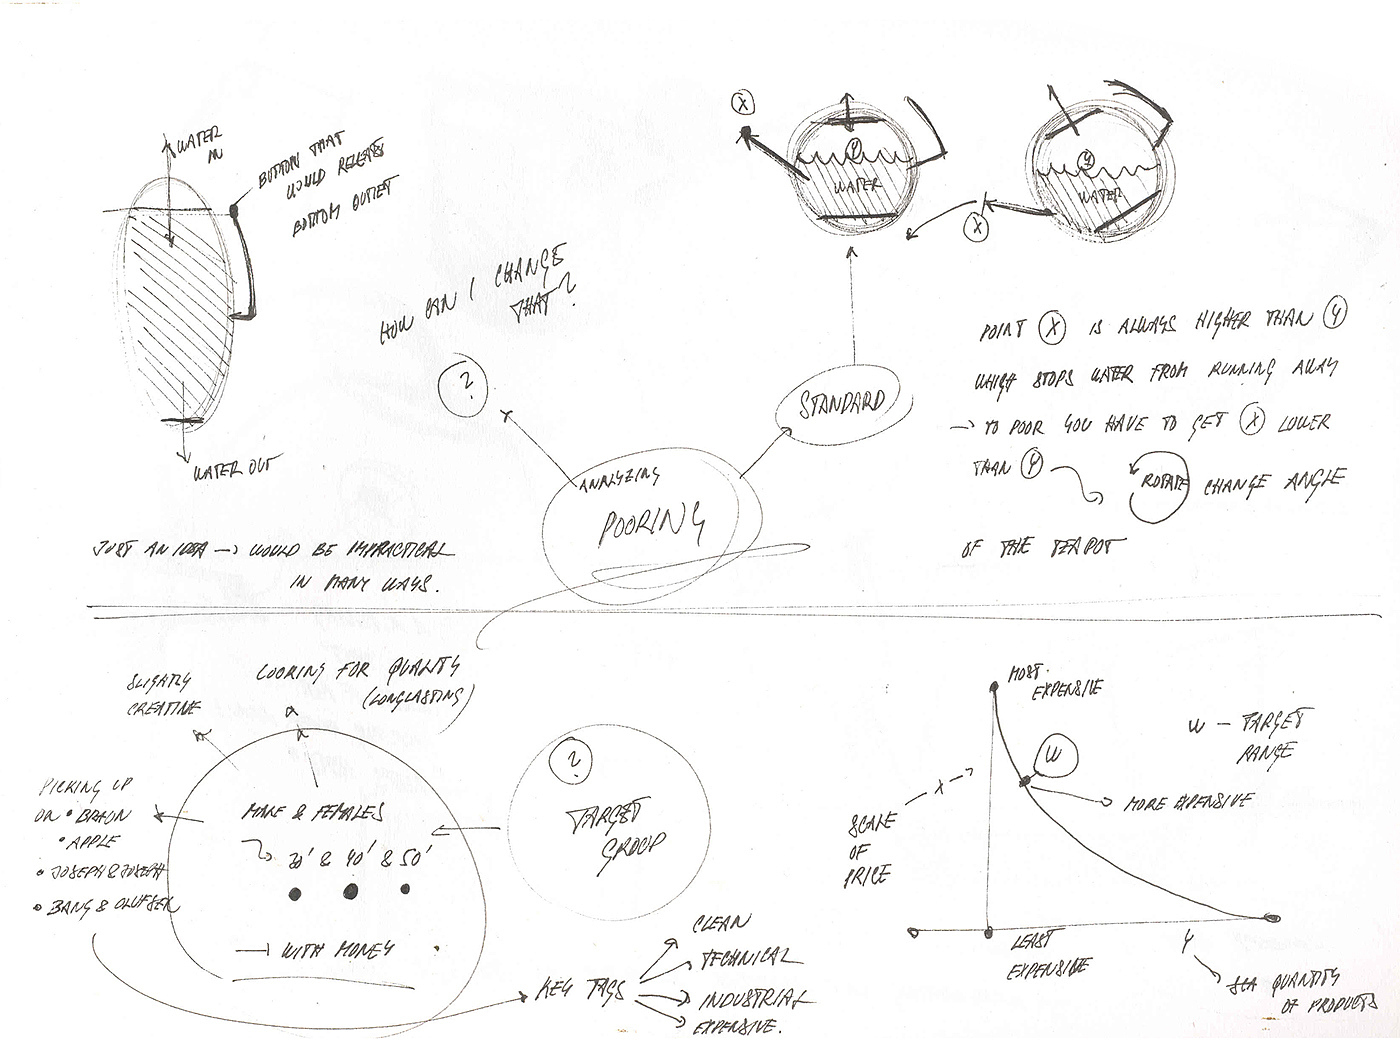 WATER
IN
BUTTON THAT
WOULD RELEASE
BOTTOM OUTLET
WATER OUT
JUST AN IDEA → WOULD BE IMPRACTICAL
IN MANY WAYS.
HOW CAN I CHANGE
THAT?
?
ANALYZING
POORING
STANDARD
X
Y
WATER
X
Y
WATER
POINT X IS ALWAYS HIGHER THAN Y
WHICH STOPS WATER FROM RUNNING AWAY
→ TO POOR YOU HAVE TO GET X LOWER
THAN Y ROTATE CHANGE ANGLE
OF THE TEAPOT
SLIGHTLY
CREATIVE
LOOKING FOR QUALITY
(LONGLASTING)
PICKING UP
ON • BRAUN
• APPLE
• JOSEPH & JOSEPH
• BANG & OLUFSEN
MALE & FEMALES
30' & 40' & 50'
WITH MONEY
?
TARGET
GROUP
KEY TAGS
CLEAN
TECHNICAL
INDUSTRIAL
EXPENSIVE.
MOST
EXPENSIVE
W
W – TARGET
RANGE
MORE EXPENSIVE
X
SCALE
OF
PRICE
LEAST
EXPENSIVE
Y
QUANTITY
OF PRODUCTS